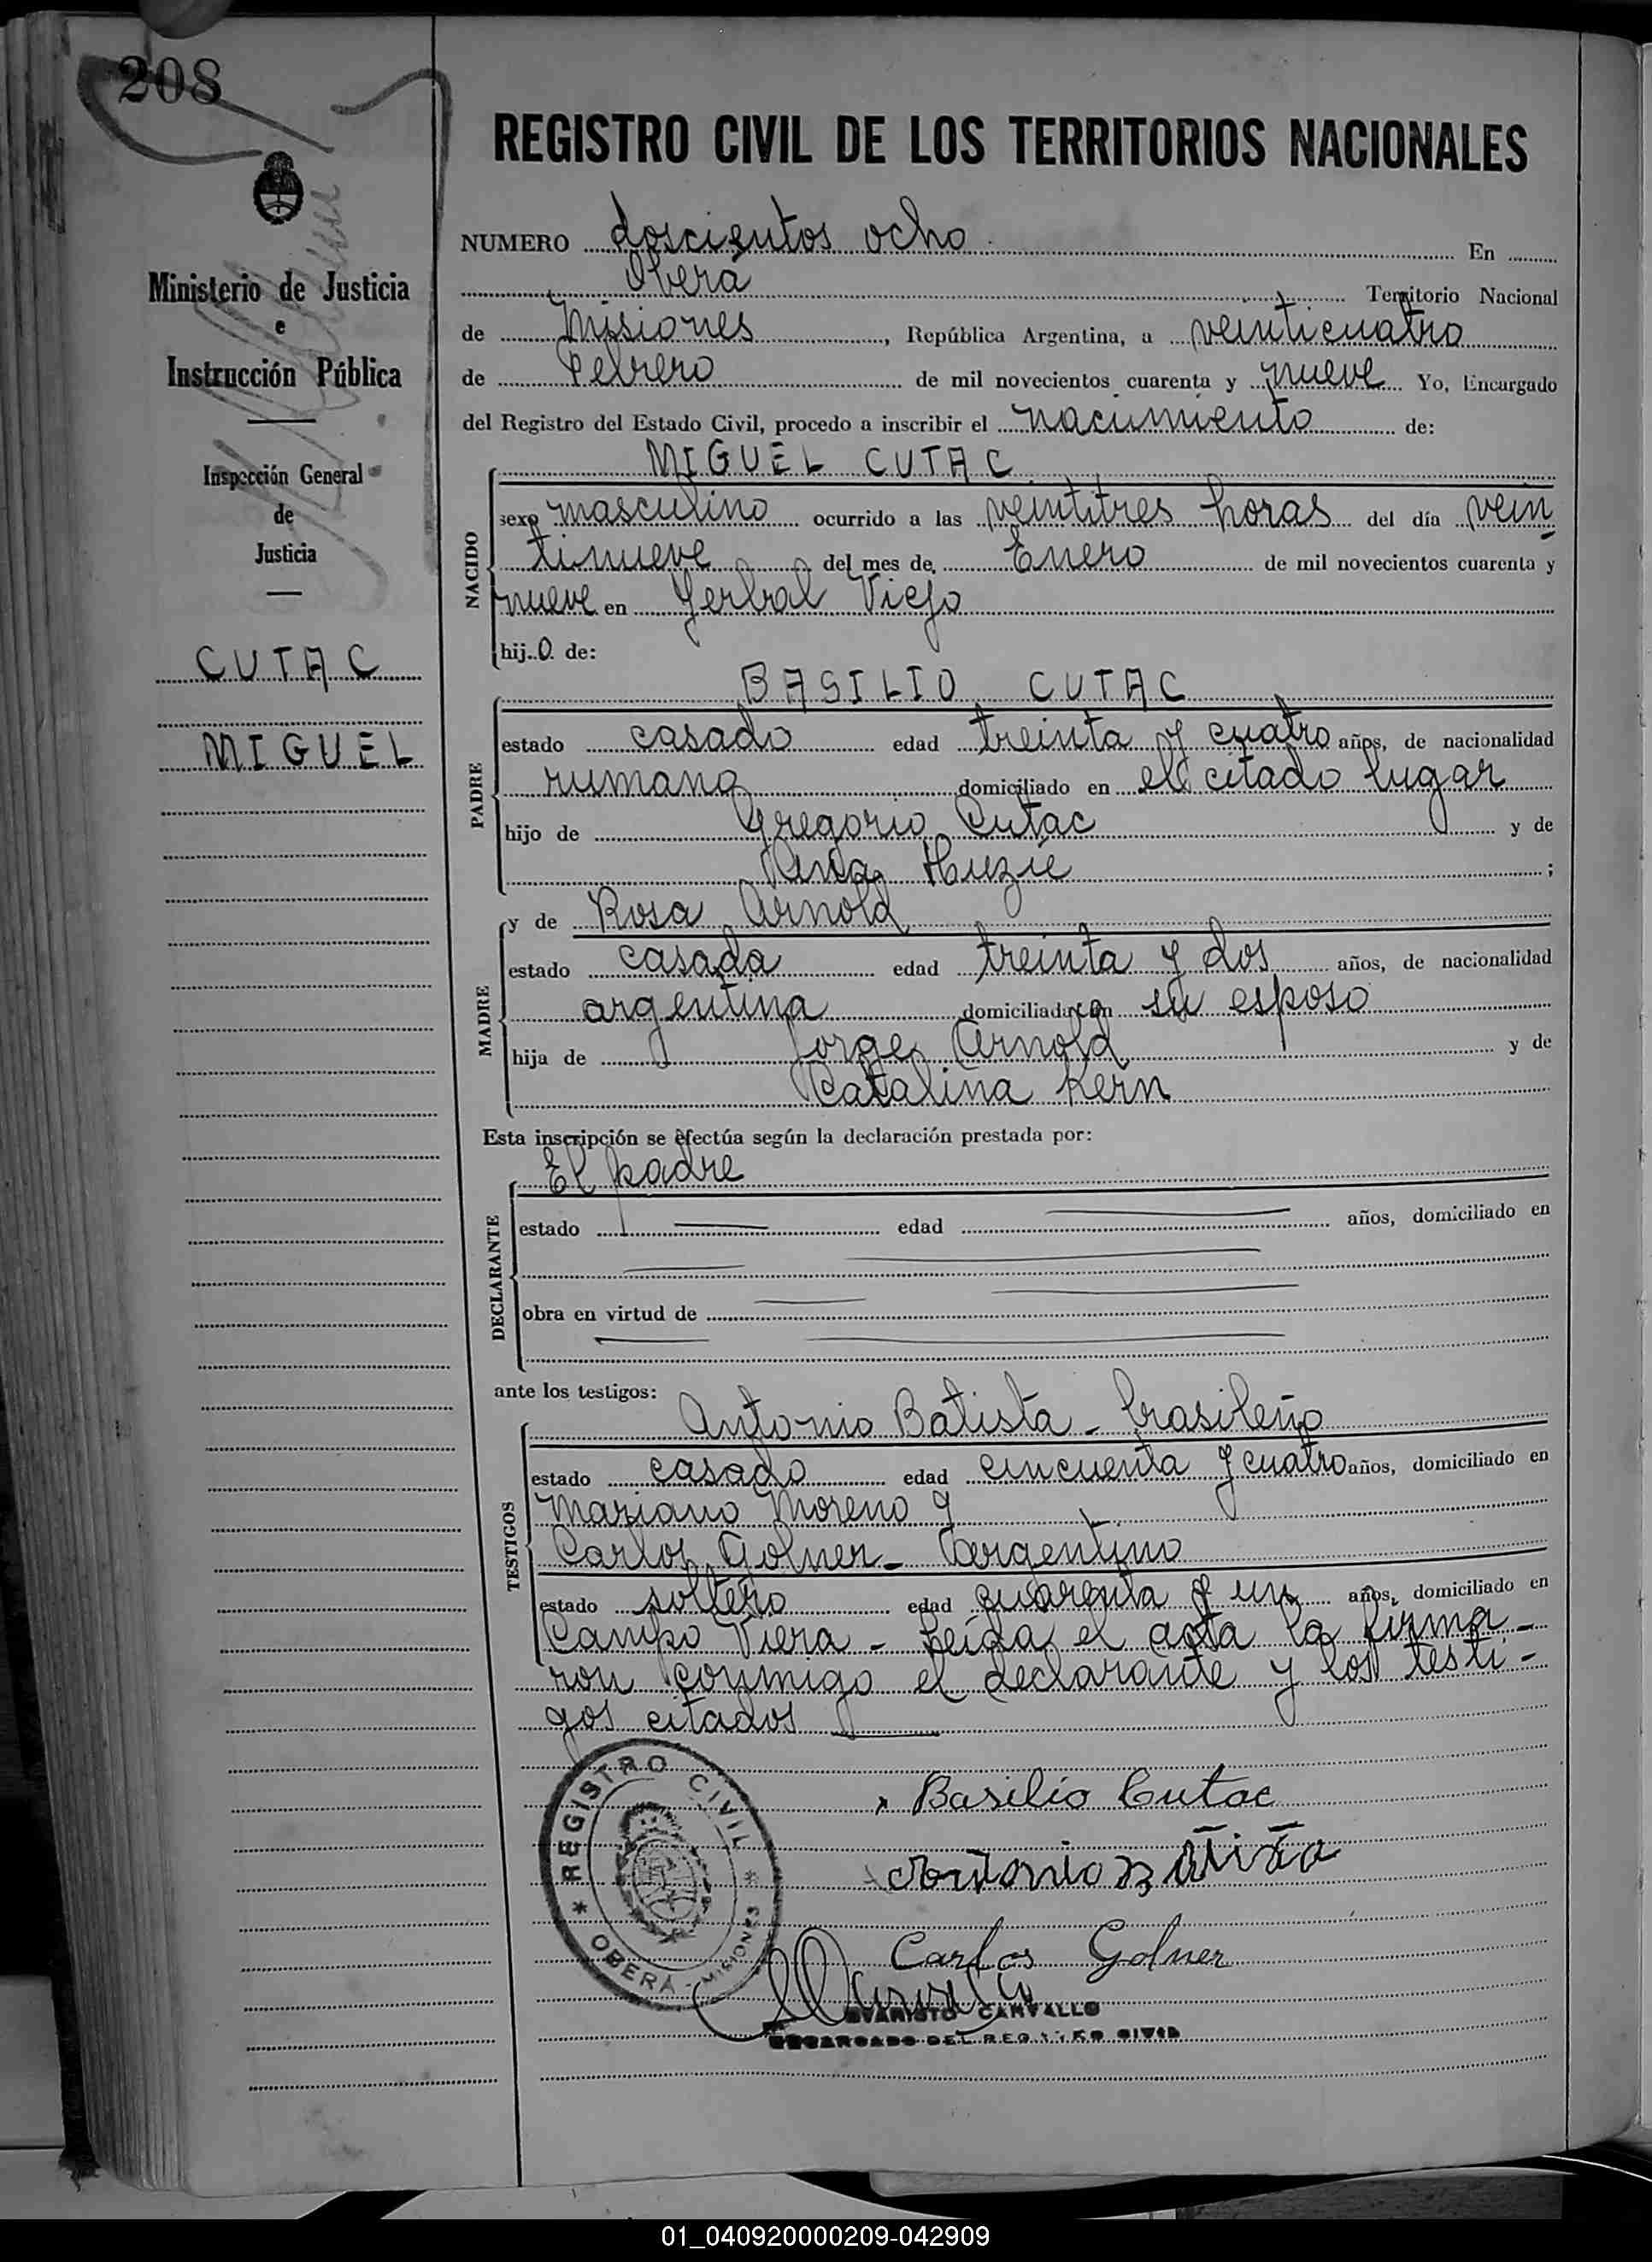 208
REGISTRO CIVIL DE LOS TERRITORIOS NACIONALES
Ministerio de Justicia
e
Instrucción Pública
Inspección General
de
Justicia
CUTAC
MIGUEL
NUMERO doscientos ocho En
Oberá Territorio Nacional
de Misiones, República Argentina, a veinticuatro
de Febrero de mil novecientos cuarenta y nueve Yo, Encargado
del Registro del Estado Civil, procedo a inscribir el nacimiento de:
MIGUEL CUTAC
NACIDO
sexo masculino ocurrido a las veintitres horas del día vein
tinueve del mes de Enero de mil novecientos cuarenta y
nueve en Yerbal Viejo
hijo de:
BASILIO CUTAC
PADRE
estado casado edad treinta y cuatro años, de nacionalidad
rumana domiciliado en el citado lugar
hijo de Gregorio Cutac y de
Huzie ;
y de Rosa Arnold
MADRE
estado casada edad treinta y dos años, de nacionalidad
argentina domiciliada con su esposo
hija de Jorge Arnold y de
Catalina Kern
Esta inscripción se efectúa según la declaración prestada por:
El padre
DECLARANTE
estado edad años, domiciliado en
obra en virtud de
ante los testigos:
Antonio Batista - brasileño
TESTIGOS
estado casado edad cincuenta y cuatro años, domiciliado en
Mariano Moreno y
Carlos Golner - Argentino
estado soltero edad cuarenta y un años, domiciliado en
Campo Viera - Leída el acta la firma-
ron conmigo el declarante y los testi-
gos citados
REGISTRO CIVIL
* OBERÁ - MISIONES *
Basilio Cutac
Antonio Batista
Carlos Golner
EVARISTO CARVALLO
ENCARGADO DEL REGISTRO CIVIL
01_040920000209-042909